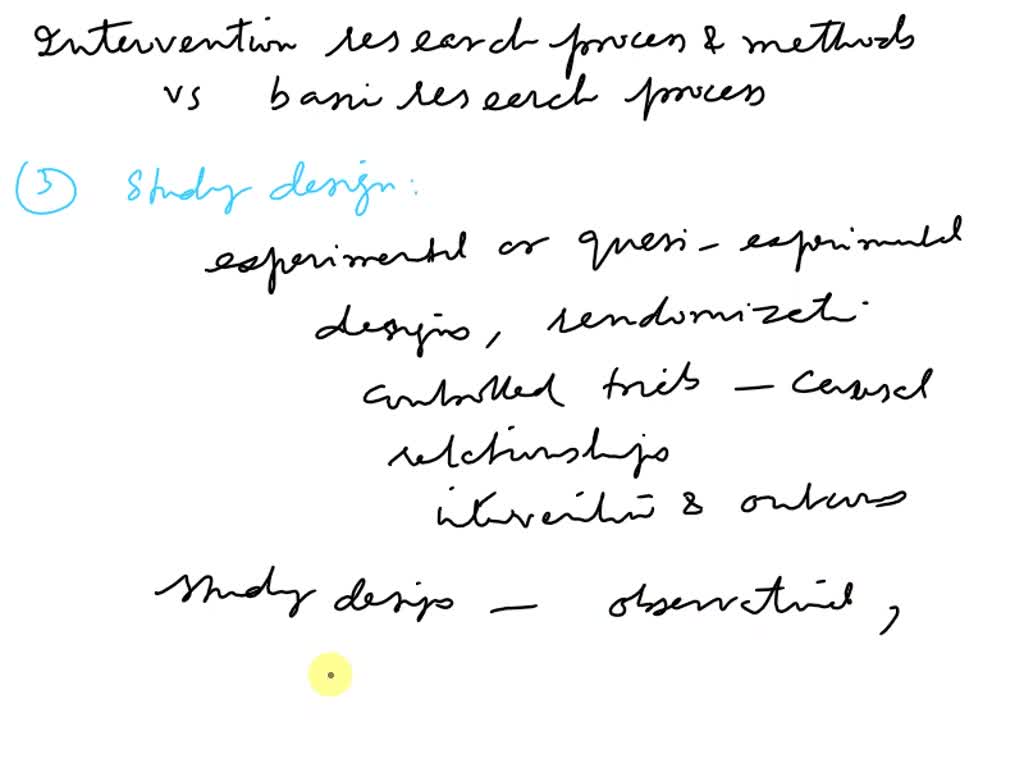 Intervention research process & methods
vs basic research process
③ Study design:
experimental or quasi-experimental
designs, randomization
controlled trials - causal
relationships
intervention & outcomes
study designs - observational,